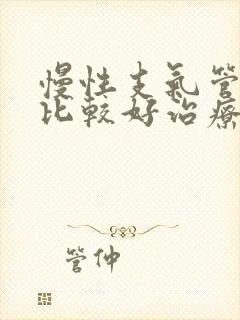 慢性支氣管
比較好治療
管仲